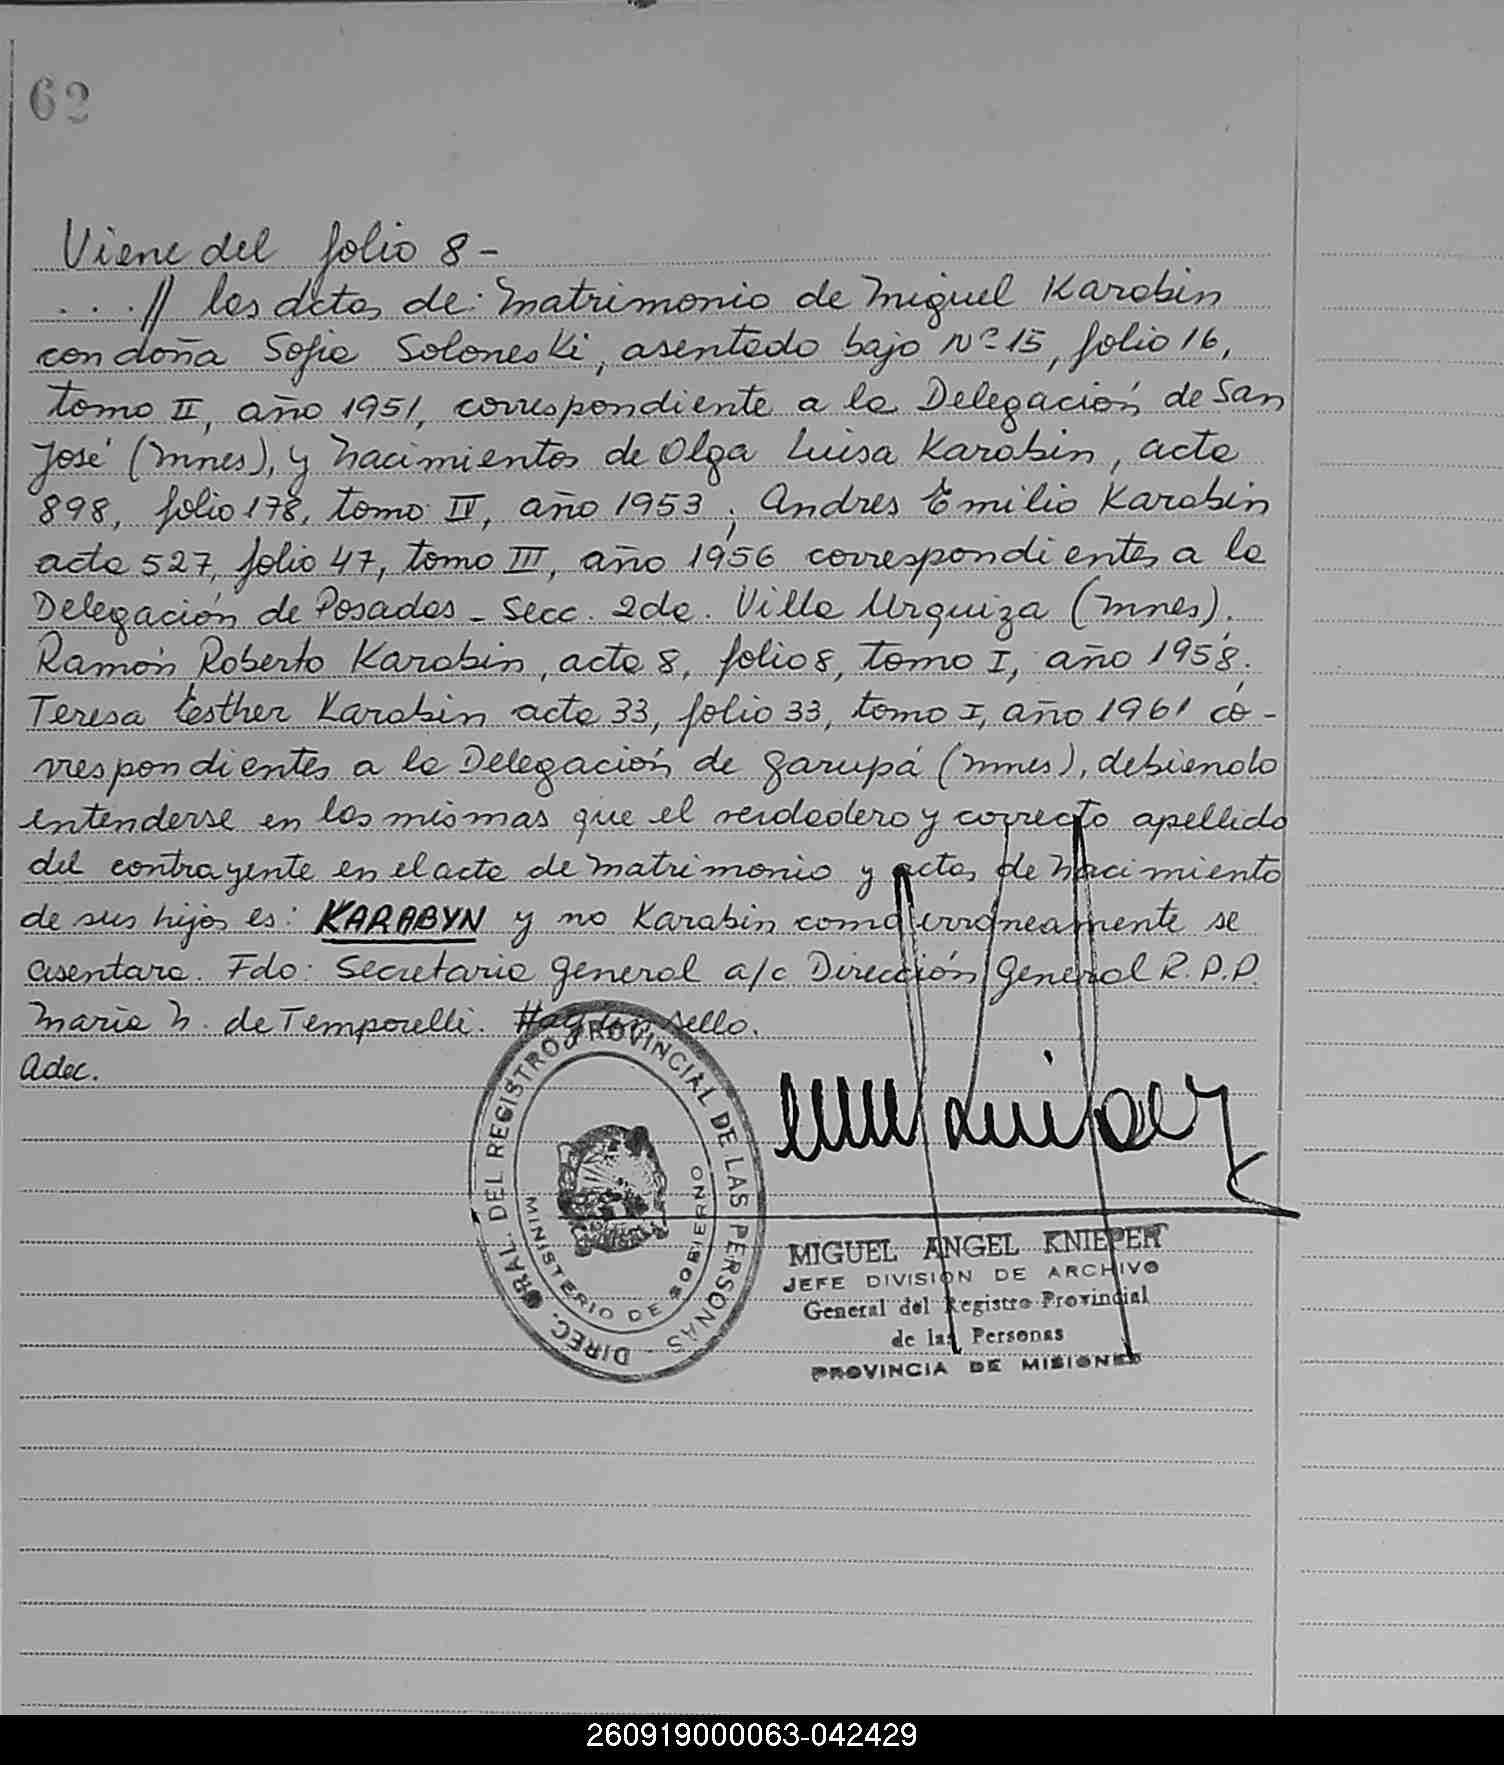 62
Viene del folio 8 -
...// las actas de: Matrimonio de Miguel Karabin
con doña Sofia Soloneski, asentado bajo Nº 15, folio 16,
tomo II, año 1951, correspondiente a la Delegación de San
José (Mnes), y Nacimientos de Olga Luisa Karabin, acta
898, folio 178, tomo IV, año 1953; Andres Emilio Karabin
acta 527, folio 47, tomo III, año 1956 correspondientes a la
Delegación de Posadas - Secc. 2da. Villa Urquiza (Mnes).
Ramón Roberto Karabin, acta 8, folio 8, tomo I, año 1958;
Teresa Esther Karabin acta 33, folio 33, tomo I, año 1961 co-
rrespondientes a la Delegación de Garupá (Mnes), debiendo
entenderse en las mismas que el verdadero y correcto apellido
del contrayente en el acta de Matrimonio y actas de Nacimiento
de sus hijos es: KARABYN y no Karabin como erroneamente se
asentara. Fdo: Secretaria General a/c Dirección General R.P.P.
Maria N. de Temporelli. Hay un sello.
Adec.
DIREC. GRAL. DEL REGISTRO PROVINCIAL DE LAS PERSONAS
MINISTERIO DE GOBIERNO
MIGUEL ANGEL KNIEPER
JEFE DIVISION DE ARCHIVO
General del Registro Provincial
de las Personas
PROVINCIA DE MISIONES
260919000063-042429